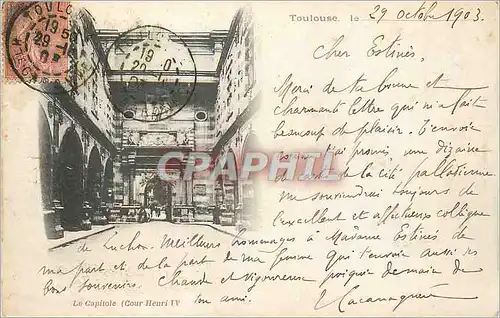 Toulouse, le 29 octobre 1903.
Cher Estinès,
Merci de ta bonne et
charmante lettre qui m'a fait
beaucoup de plaisir. T'envoie
comme j'ai promis une dizaine
de la cité palladienne
me souviendrai toujours de
l'excellent et affectueux collègue
de Luchon. Meilleurs hommages à Madame Estinès de
ma part et de la part de ma femme qui t'envoie aussi ses
bons souvenirs. Chaude et vigoureuse poignée de main de
ton ami.
Le Capitole (Cour Henri IV
CPA